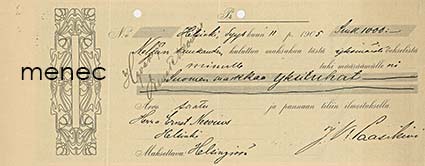 Helsinki, Syyskuun 11 p. 1905 Smk. 1000:-
Neljän kuukauden kuluttua maksakaa tästä
minulle tahi määräämälleni
Suomen markkaa yksituhat
Arvo saatu ja pannaan tiliin ilmoituksetta.
Herra Ernst Nevius
Helsinki
Maksettava Helsingissä
menec